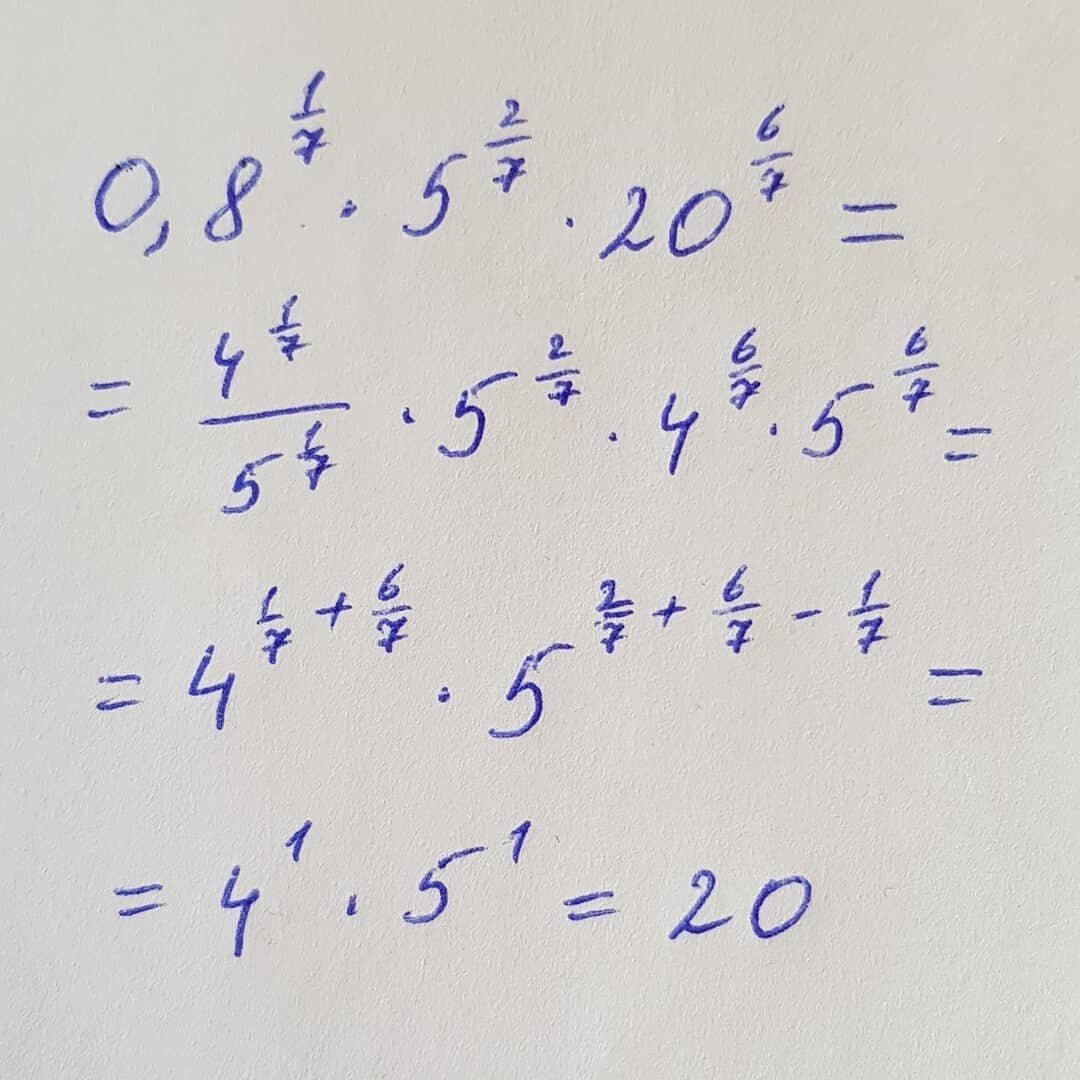 0,8^(1/7) · 5^(2/7) · 20^(6/7) =
= 4^(1/7) / 5^(1/7) · 5^(2/7) · 4^(6/7) · 5^(6/7) =
= 4^(1/7 + 6/7) · 5^(2/7 + 6/7 - 1/7) =
= 4^1 · 5^1 = 20